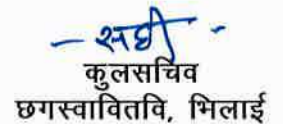 - सही -
कुलसचिव
छगस्वावितवि, भिलाई